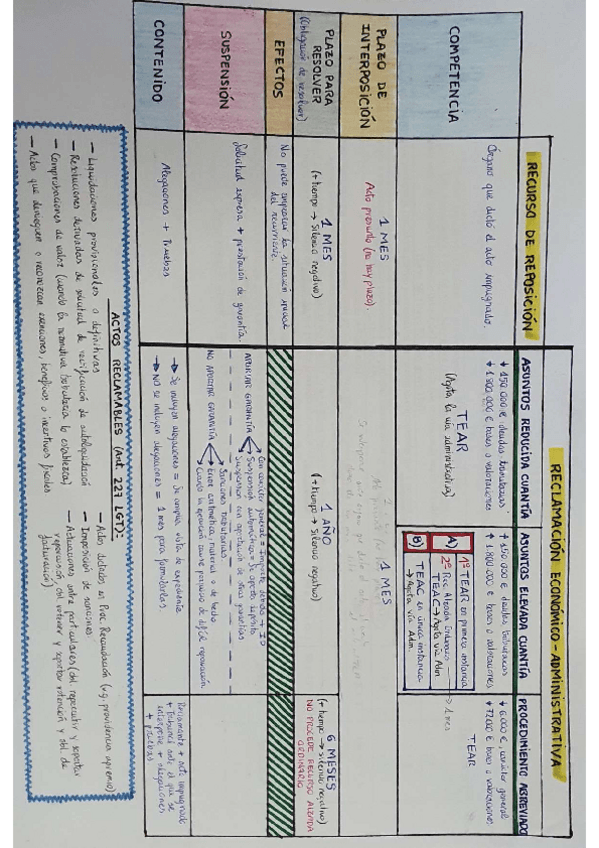 RECURSO DE REPOSICIÓN
RECLAMACIÓN ECONÓMICO-ADMINISTRATIVA
ASUNTOS REDUCIDA CUANTÍA
ASUNTOS ELEVADA CUANTÍA
PROCEDIMIENTO ABREVIADO
COMPETENCIA
Órgano que dictó el acto impugnado.
↓ 150.000 €, deudas tributarias
↓ 1.800.000 € bases o valoraciones
TEAR
(Agota la vía administrativa)
↑ 150.000 € deudas tributarias
↑ 1.800.000 € bases o valoraciones
A)
1º TEAR en primera instancia
2º Rec. Alzada Ordinario → 1 mes
TEAC → Agota vía Adm
B)
TEAC en única instancia
→ Agota vía Adm.
↓ 6.000 €, carácter general
↓ 72000 € bases o valoraciones
TEAR
PLAZO DE
INTERPOSICIÓN
1 MES
Acto presunto (no hay plazo).
1 MES
PLAZO PARA
RESOLVER
(Obligación de resolver)
1 MES
(+ tiempo → Silencio negativo)
1 AÑO
(+ tiempo → Silencio negativo)
6 MESES
(+ tiempo → silencio negativo)
NO PROCEDE RECURSO ALZADA
ORDINARIO
EFECTOS
No puede empeorar la situación inicial
del recurrente.
SUSPENSIÓN
Solicitud expresa + prestación de garantía.
APORTAR GARANTÍA
Con carácter general = Importe deuda + ID
Suspensión automática = Se aporta depósito
Suspensión con aportación de otras garantías
NO APORTAR GARANTÍA
Sanciones tributarias
Error aritmético, material o de hecho
Cuando la ejecución cause perjuicio de difícil reparación.
CONTENIDO
Alegaciones + Pruebas
→ Se incluyen alegaciones =
→ NO se incluyen alegaciones = 1 mes para formularlas.
Reclamante + acto impugnado
+ Tribunal ante el que se
interpone + alegaciones
+ pruebas
ACTOS RECLAMABLES (Art. 227 LGT):
— Liquidaciones provisionales o definitivas
— Resoluciones derivadas de solicitud de rectificación de autoliquidación
— Comprobaciones de valor (cuando la normativa tributaria lo establezca)
— Actos que denieguen o reconozcan exenciones, beneficios o incentivos fiscales
— Actos dictados en Proc. Recaudación (v.g. providencia apremio)
— Imposición de sanciones.
— Actuaciones entre particulares (obl. repercutir y soportar
repercusión, obl. retener y soportar retención y obl. de
facturación)